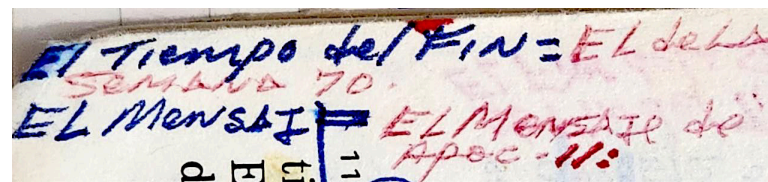 El Tiempo del FIN = EL de LA
SEMANA 70.
EL MENSAJE = EL MENSAJE de
APOC - 11: